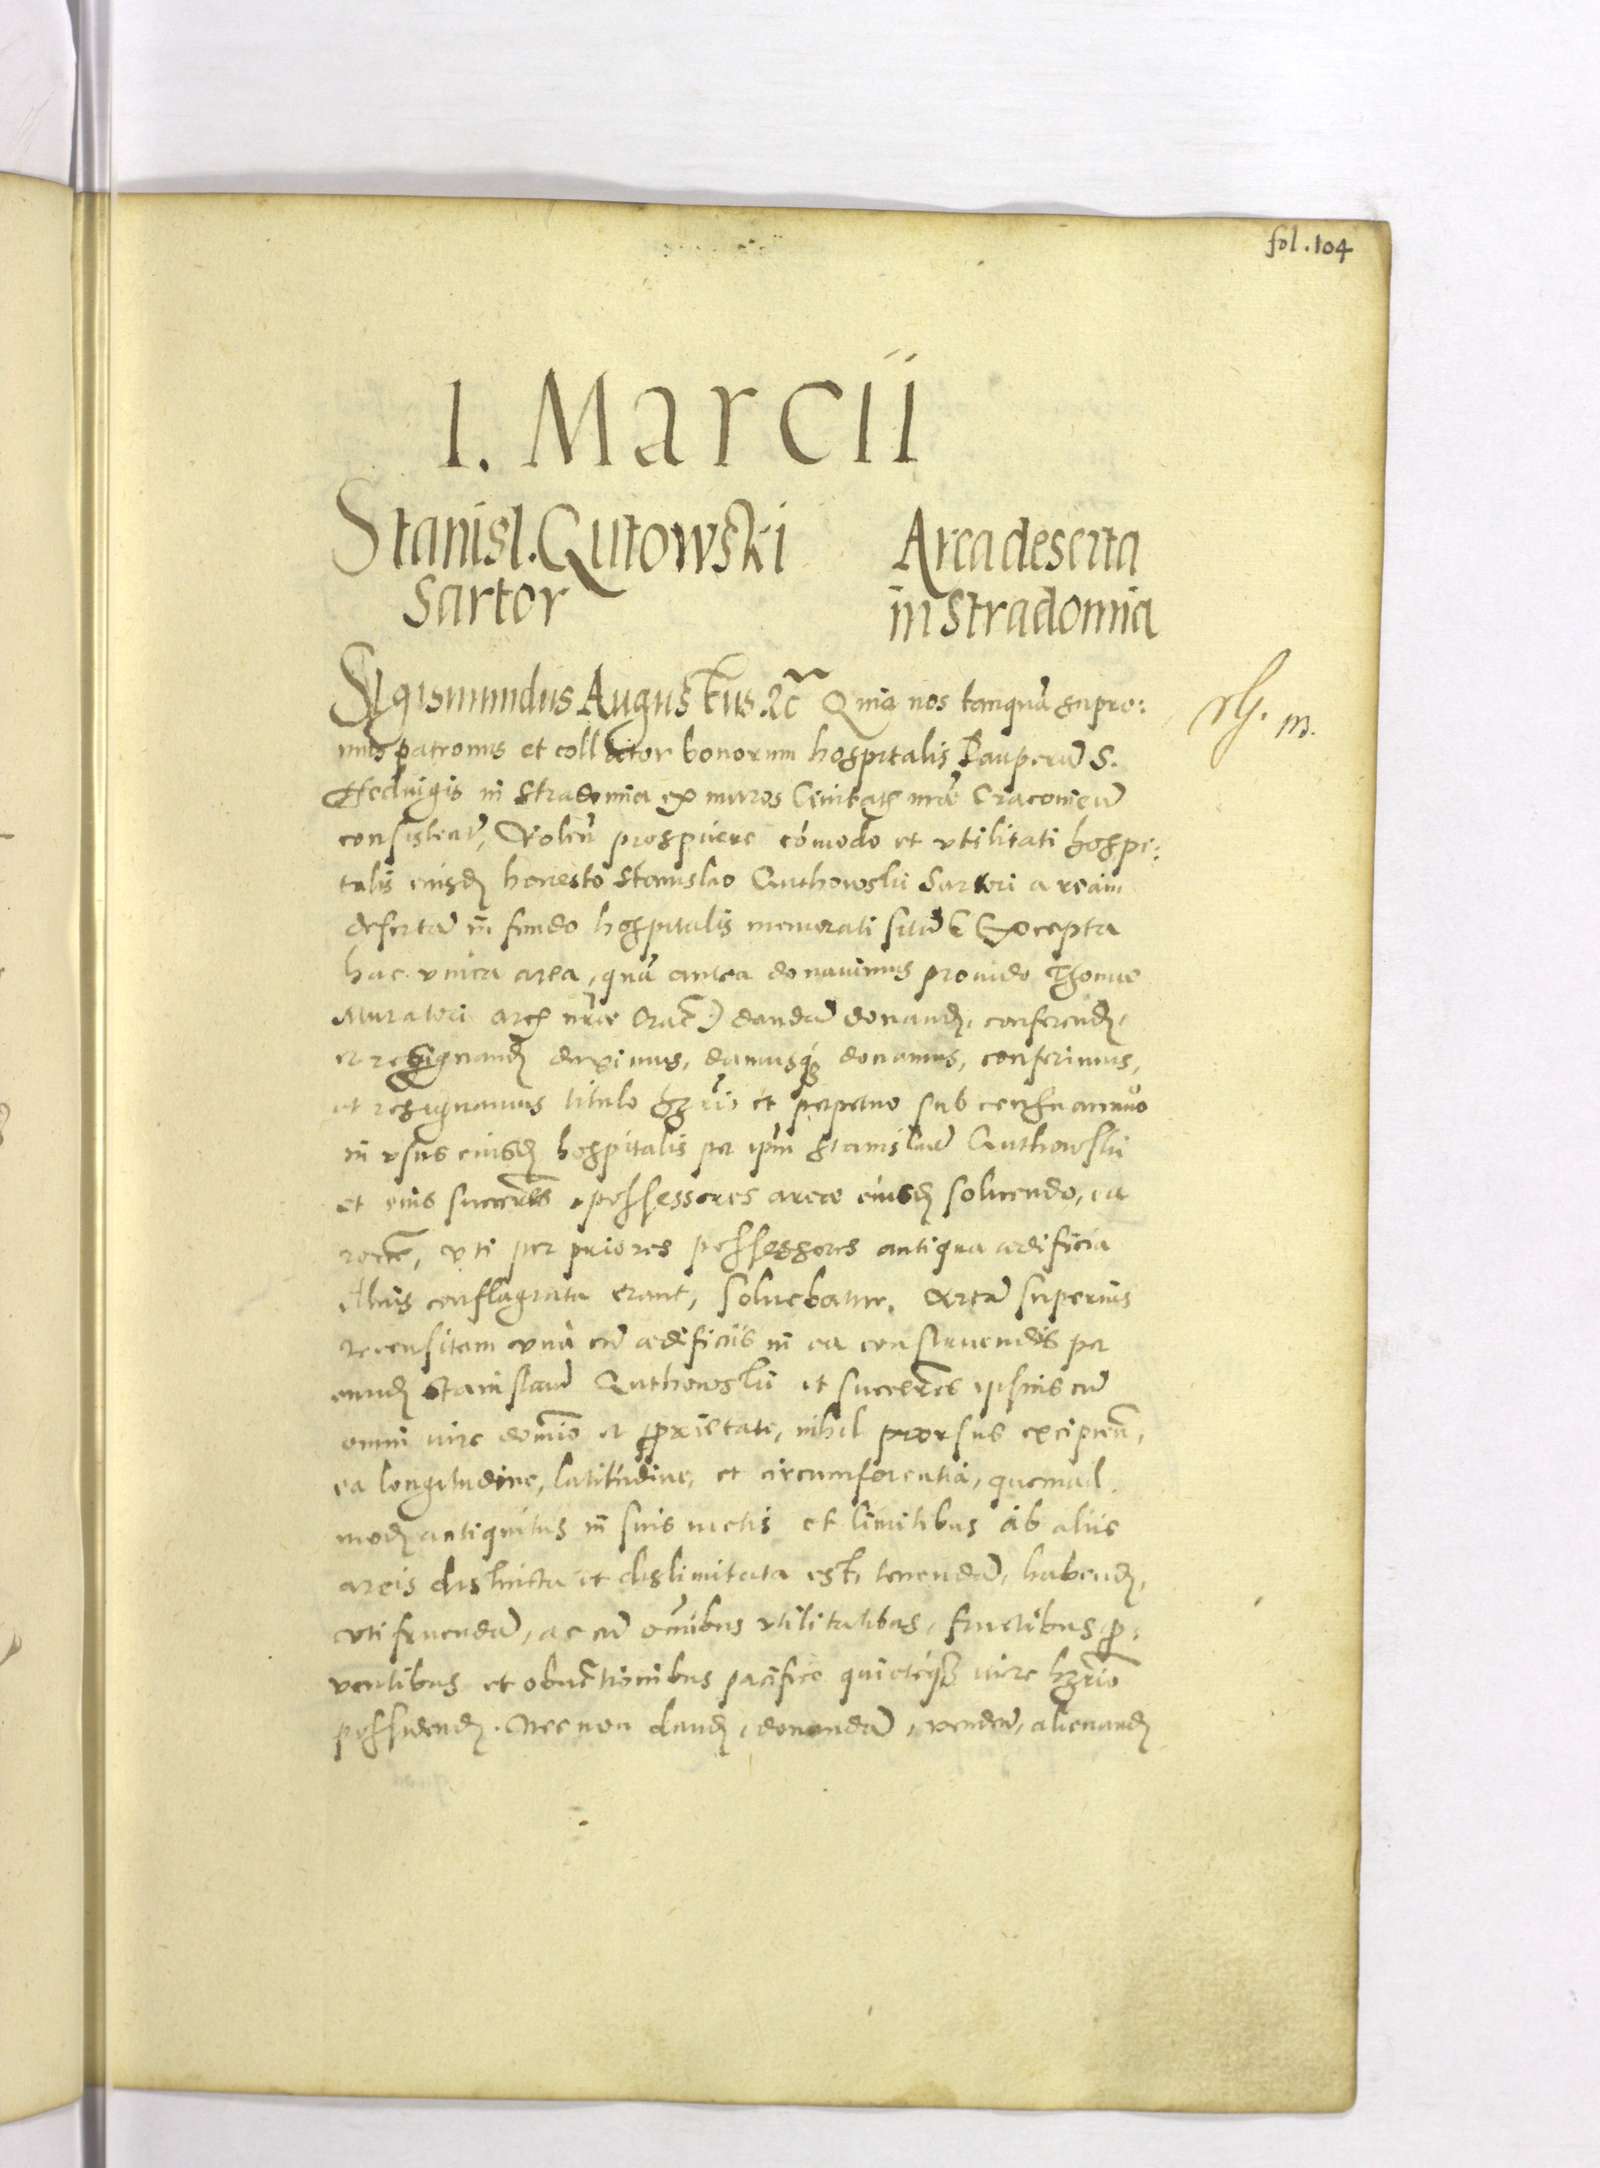 fol. 104
1. Marcii
Stanisl. Qutowski Area deserta
Sartor in Stradomia
Sigismundus Augustus etc̃ Quia nos tanquã supre:
mus patronus et collator bonorum hospitalis Pauperũ S.
Heduigis in Stradomia ex muros Ciuitatis nr̃ae Cracouieñ
consistentũ, Voleñ prospicere cómodo et vtilitati hospi:
talis eiusd honesto Stanislao Quthowski Sartori aream
desertã in fundo hospitalis memorati sitã (Excepta
hac vnica area, quã antea donauimus prouido Thomae
Muratori arcis nr̃ae Crac̃) dandã donand, conferend,
et resignand duximus, damusq donamus, conferimus,
et resignamus titulo hrẽi et perpetuo sub censu annuo
in vsus eiusd hospitalis per ipm̃ Stanislaũ Quthowski
et eius succr̃es possessores areae eiusd soluendo, ea
roc̃e, vti per priores possessores antiqua aedificia
conflagrata erant, soluebatur. Areã superius
recensitam vnà cũ aedificiis in ea construendis per
eund Stanislaũ Quthowski et succesr̃es ipsius cũ
omni iure domĩo et pprietate, nihil prorsus excipieñ,
ea longitudine, latitudine, et circumferentia, quemad
mod antiquitus in suis metis et limitibus ab aliis
areis distincta et dislimitata est, tenendã, habend,
vti fruendã, ac cũ om̃ibus vtilitatibus, fructibus, p:
ventibus et obuẽtionibus pacifice quieteq iure hrẽio
possidend. Nec non dand, donandã, vendeñ, alienand